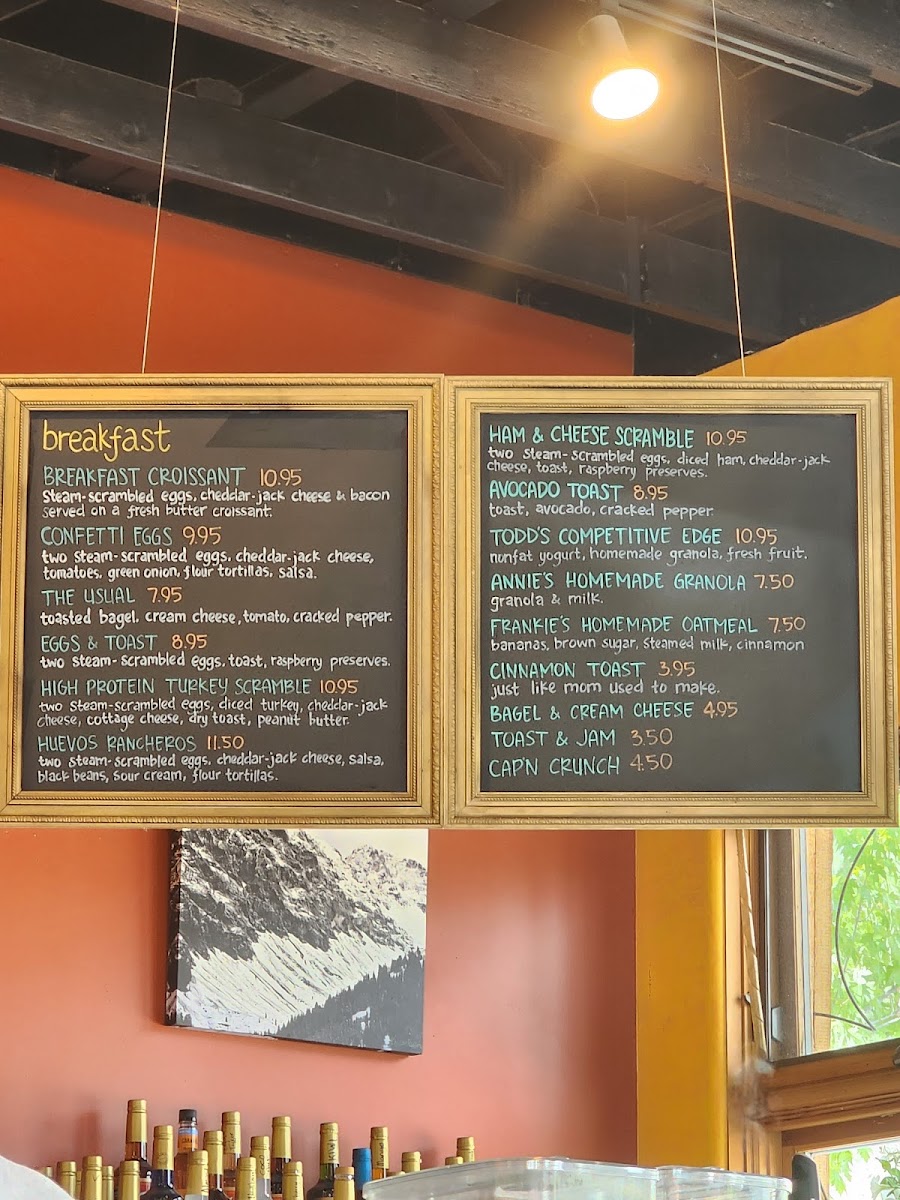 breakfast
BREAKFAST CROISSANT 10.95
Steam-scrambled eggs, cheddar-jack cheese & bacon
served on a fresh butter croissant.
CONFETTI EGGS 9.95
two steam-scrambled eggs, cheddar-jack cheese,
tomatoes, green onion, flour tortillas, salsa.
THE USUAL 7.95
toasted bagel, cream cheese, tomato, cracked pepper.
EGGS & TOAST 8.95
two steam-scrambled eggs, toast, raspberry preserves.
HIGH PROTEIN TURKEY SCRAMBLE 10.95
two steam-scrambled eggs, diced turkey, cheddar-jack
cheese, cottage cheese, dry toast, peanut butter.
HUEVOS RANCHEROS 11.50
two steam-scrambled eggs, cheddar-jack cheese, salsa,
black beans, sour cream, flour tortillas.
HAM & CHEESE SCRAMBLE 10.95
two steam-scrambled eggs, diced ham, cheddar-jack
cheese, toast, raspberry preserves.
AVOCADO TOAST 8.95
toast, avocado, cracked pepper
TODD'S COMPETITIVE EDGE 10.95
nonfat yogurt, homemade granola, fresh fruit.
ANNIE'S HOMEMADE GRANOLA 7.50
granola & milk.
FRANKIE'S HOMEMADE OATMEAL 7.50
bananas, brown sugar, steamed milk, cinnamon
CINNAMON TOAST 3.95
just like mom used to make.
BAGEL & CREAM CHEESE 4.95
TOAST & JAM 3.50
CAP'N CRUNCH 4.50